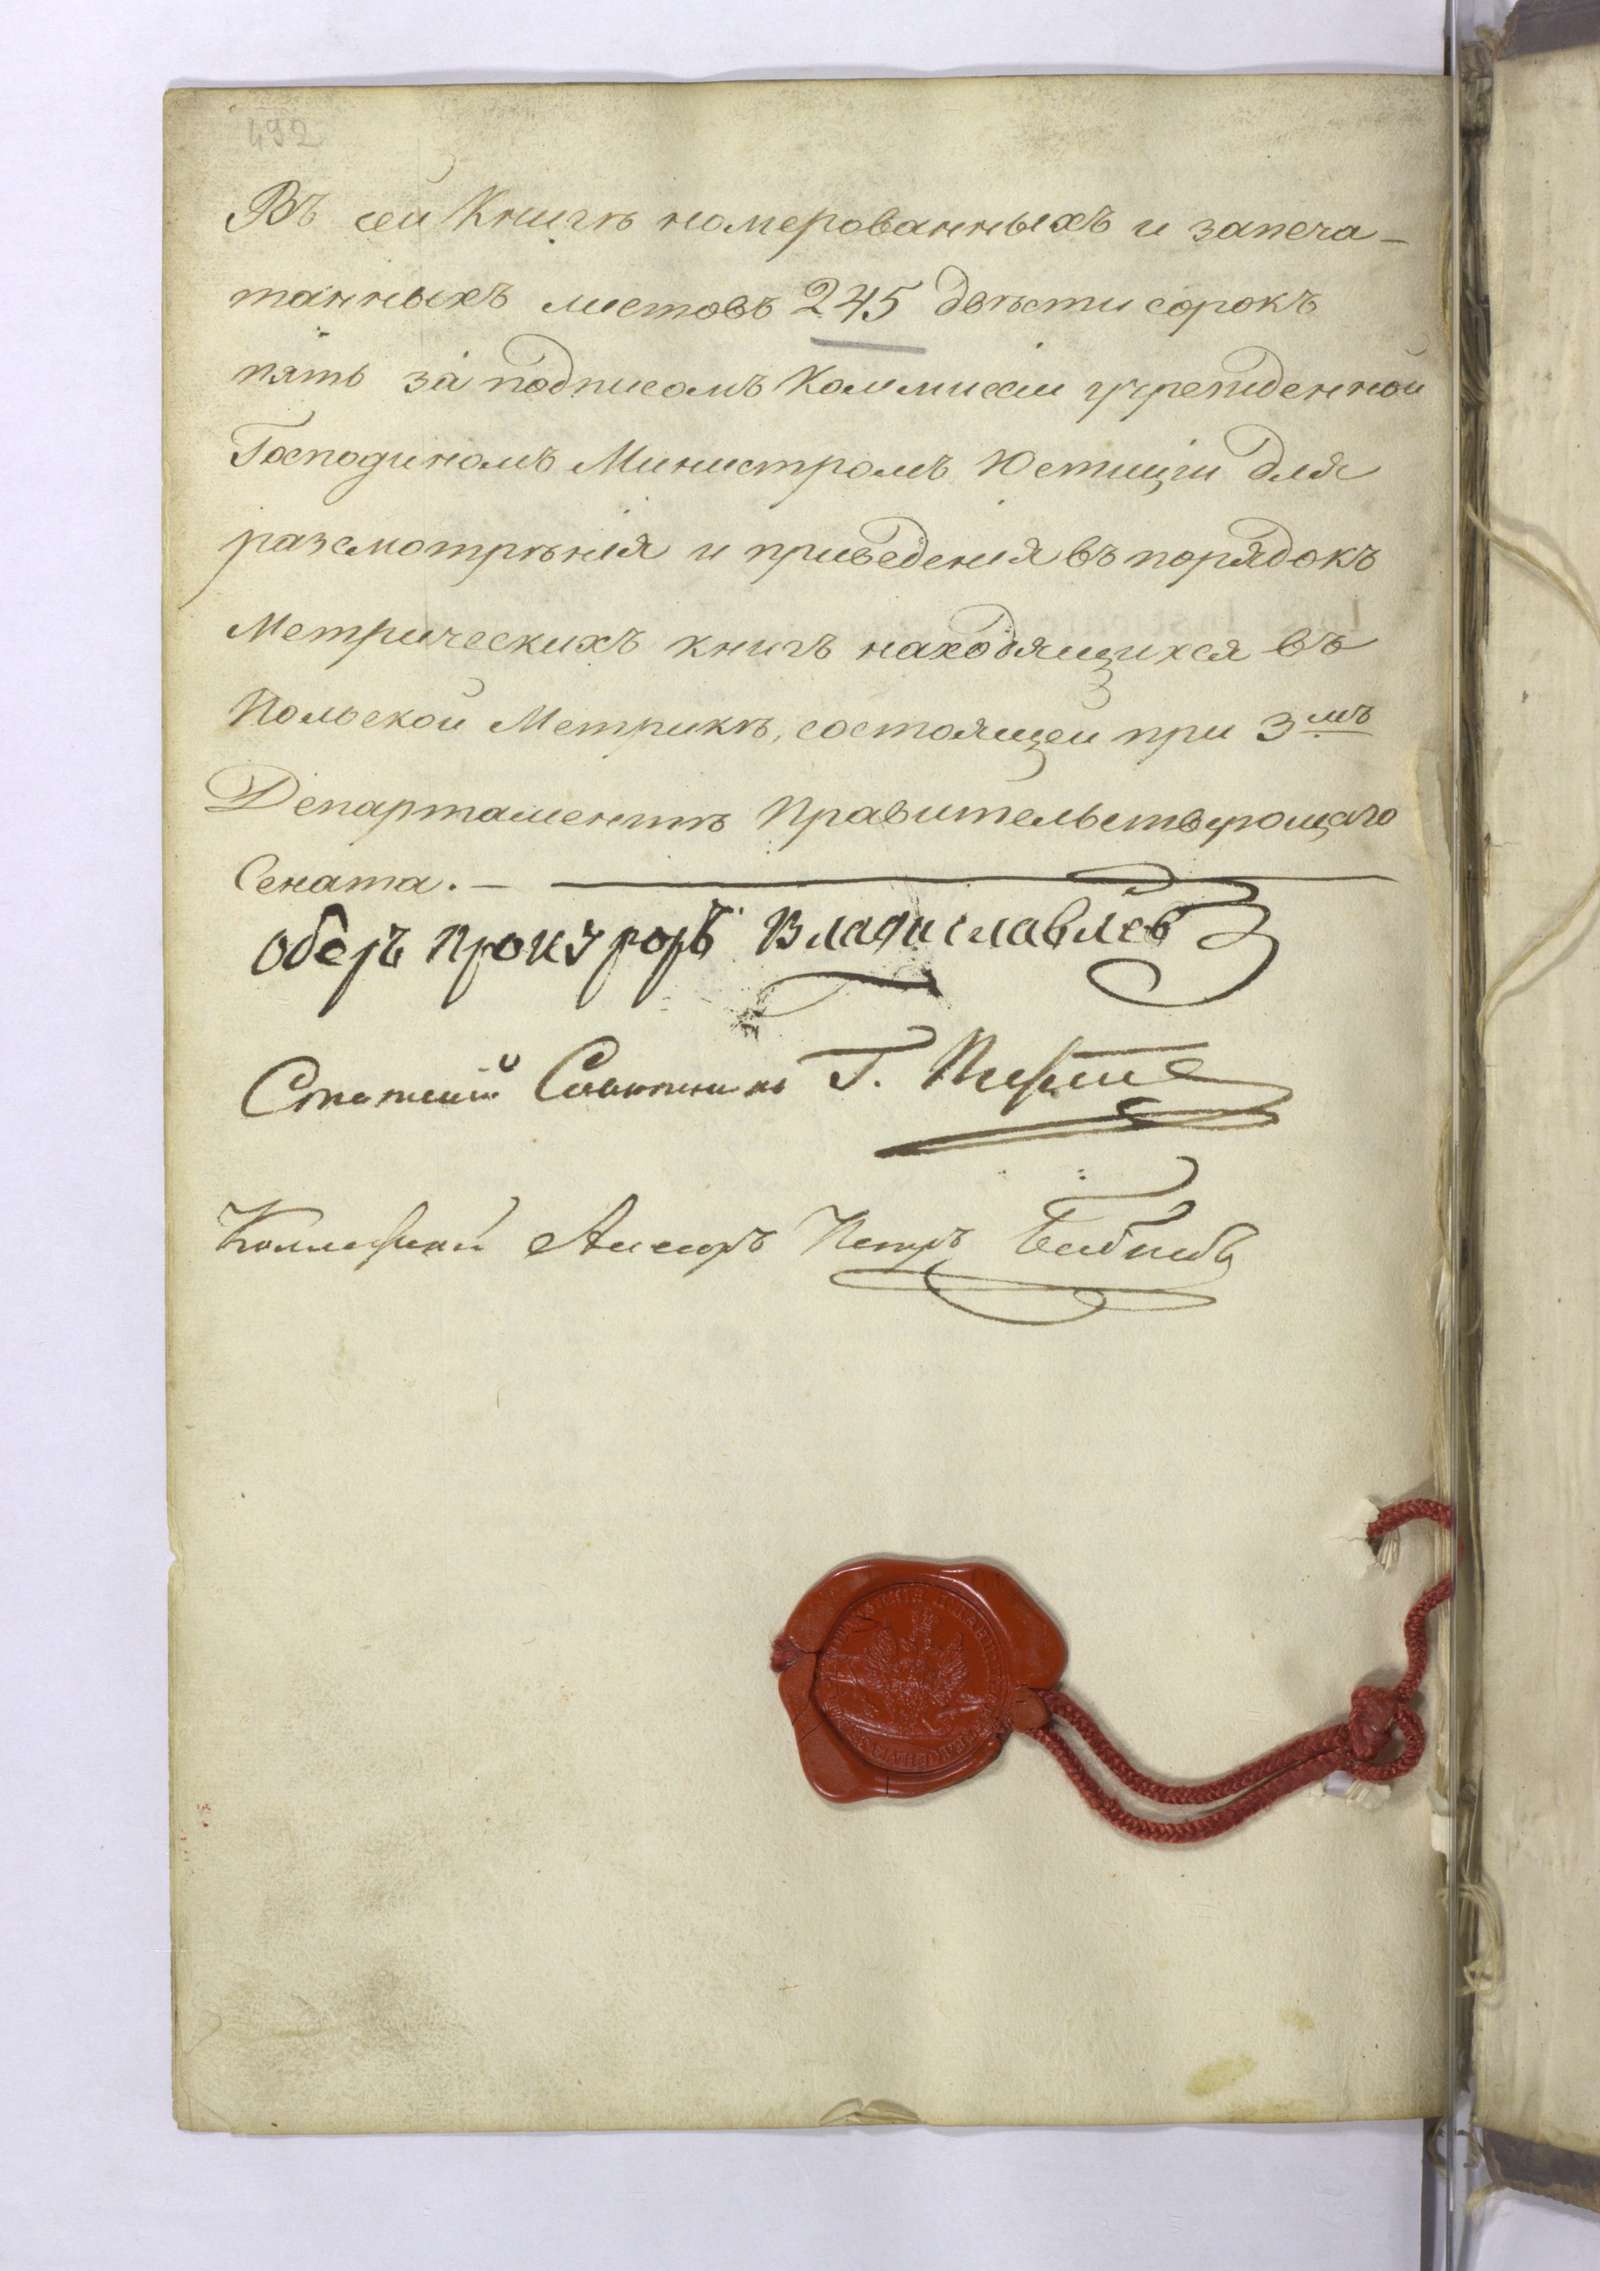 492
Въ сей Книгѣ номерованныхъ и запеча-
танныхъ листовъ 245 двѣсти сорокъ
пять за подписомъ Коммисіи учрежденной
Господиномъ Министромъ Юстиціи для
разсмотрѣнія и приведенія въ порядокъ
Метрическихъ книгъ находящихся въ
Польской Метрикѣ, состоящей при 3мъ
Департаментѣ Правительствующаго
Сената. —
Оберъ Прокуроръ Владиславлев
Статский Советникъ Г.
Коллежский Ассесоръ Петръ